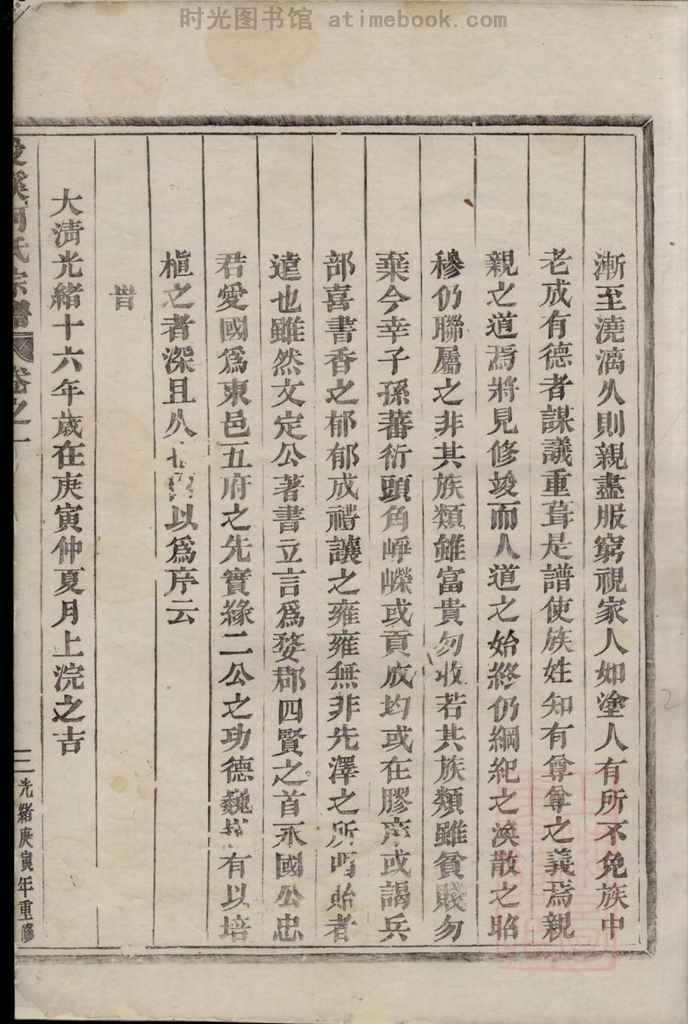 时光图书馆 atimebook.com
漸至澆漓久則親盡服窮視家人如塗人有所不免族中
老成有德者謀議重葺是譜使族姓知有尊尊之義焉親
親之道焉將見修竣而人道之始終仍綱紀之渙散之昭
穆仍聯屬之非其族類雖富貴勿收若其族類雖貧賤勿
棄今幸子孫蕃衍頭角崢嶸或貢成均或在膠庠或謁兵
部喜書香之郁郁成禮讓之雍雍無非先澤之所貽者
遠也雖然文定公著書立言為婺郡四賢之首永國公忠
君愛國為東邑五府之先實緣二公之功德巍有以培
植之者深且久以為序云
旹
大清光緒十六年歲在庚寅仲夏月上浣之吉
溪何氏宗譜 卷之一
三 光緒庚寅年重修
2